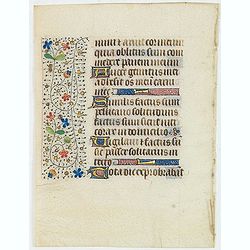 et aruit cor meum
quia oblitus sum com
medere panem meum
A voce gemitus mei
adhesit os meum carni
mee
Similis factus sum
pellicano solitudinis
factus sum sicut nicti
corax in domicilio
Vigilavi et factus
sum sicut passer solitarius in
tecto
Tota die exprobrabant